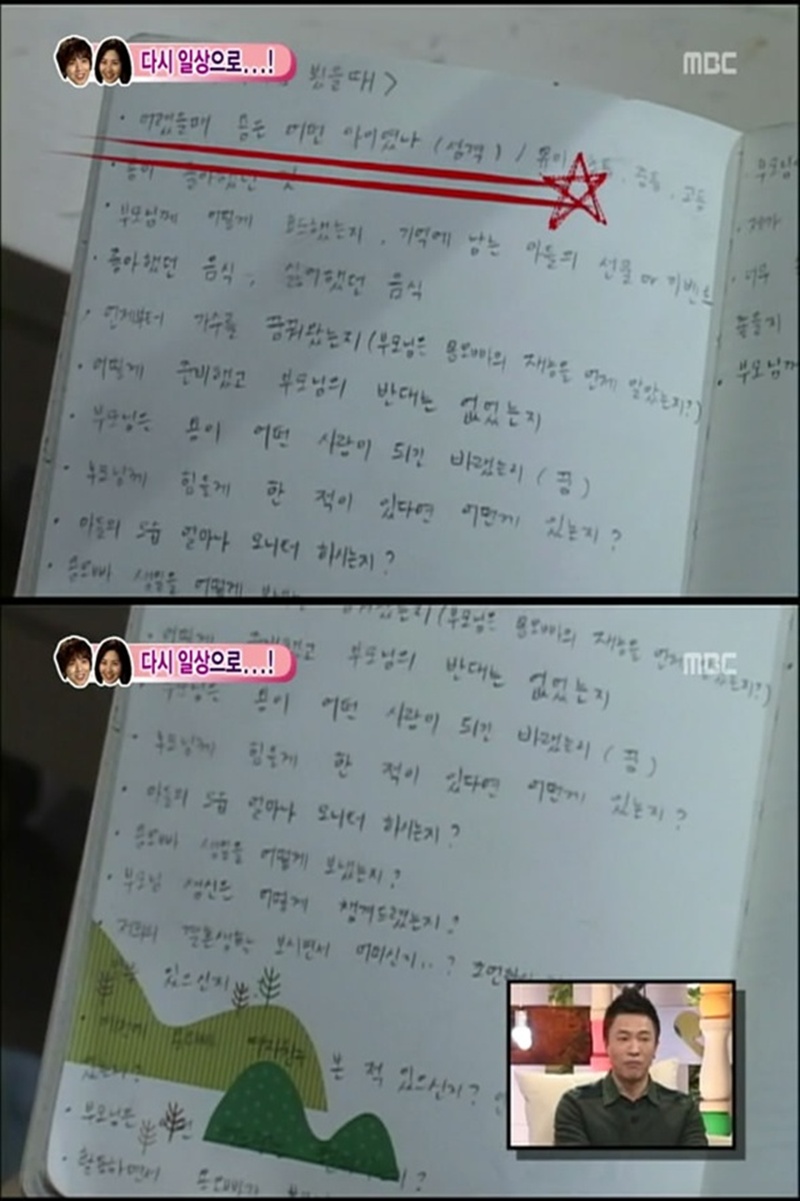 다시 일상으로...!
MBC
봤을때>
· 어렸을때 용은 어떤 아이였나 (성격) / 유아, 초등, 중등, 고등
· 용이 좋아했던 것
· 부모님께 어떻게 효도했는지, 기억에 남는 아들의 선물 or 이벤트
· 좋아했던 음식, 싫어했던 음식
· 언제부터 가수를 꿈꿔왔는지 (부모님은 용오빠의 재능을 언제 알았는지?)
· 어떻게 준비했고 부모님의 반대는 없었는지
· 부모님은 용이 어떤 사람이 되길 바랬는지 (꿈)
· 부모님께 힘들게 한 적이 있다면 어떤게 있는지?
· 아들의 모습 얼마나 모니터 하시는지?
· 용오빠 생일을 어떻게
· 부모님
· 제가
· 너무
좋을지
· 부모님께
다시 일상으로...!
MBC
(부모님은 용오빠의 재능을 언제
· 어떻게 준비했고 부모님의 반대는 없었는지
· 부모님은 용이 어떤 사람이 되길 바랬는지 (꿈)
· 부모님께 힘들게 한 적이 있다면 어떤게 있는지?
· 아들의 모습 얼마나 모니터 하시는지?
· 용오빠 생일을 어떻게 보냈는지?
· 부모님 생신은 어떻게 챙겨드렸는지?
· 저희의 결혼생활 보시면서 어떠신지..?
있으신지
본 적 있으신지?
· 부모님은
· 활동하면서 용오빠가